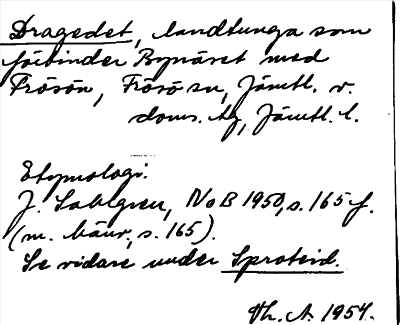 Dragedet, landtunga som
förbinder Bynäset med
Frösön, Frösö sn, Jämtl. v.
doms. tg, Jämtl. l.
Etymologi:
J. Sahlgren, NoB 1950, s. 165 f.
(m. hänv., s. 165).
Se vidare under Sproteid.
Th. A. 1954.